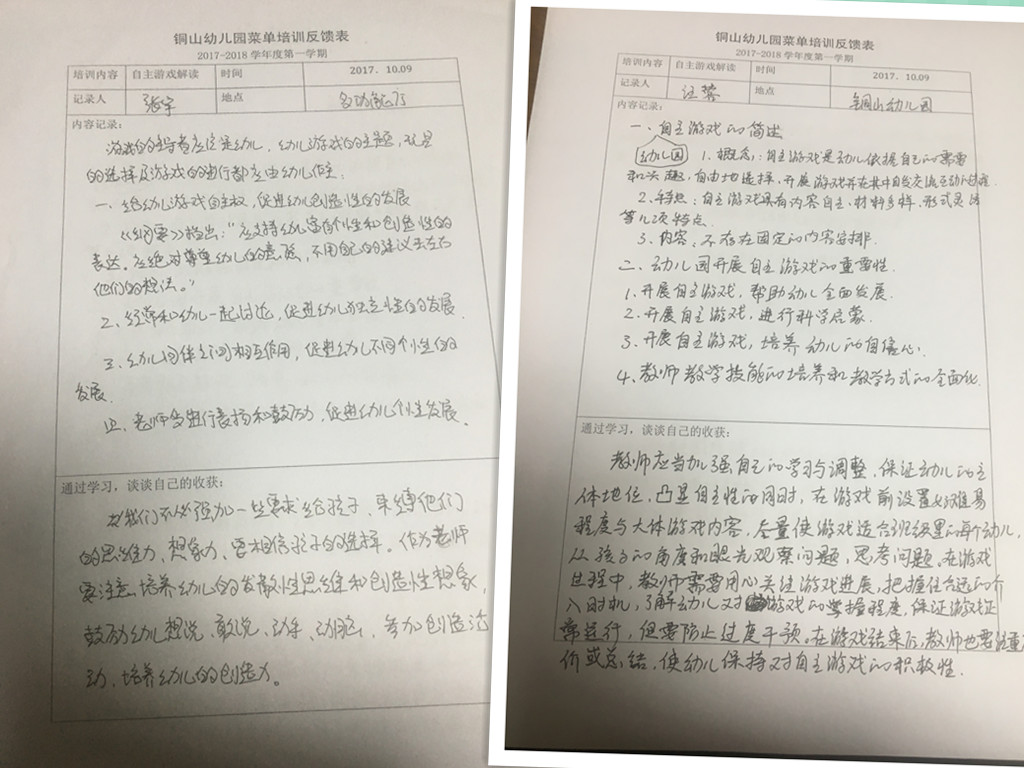 铜山幼儿园菜单培训反馈表
2017-2018 学年度第一学期
培训内容 自主游戏解读 时间 2017. 10.09
记录人 张宇 地点 多功能厅
内容记录：
游戏的主导者应该是幼儿，幼儿游戏的主题，玩具
的选择及游戏的进行都应由幼儿作主：
一、给幼儿游戏自主权，促进幼儿创造性的发展
《纲要》指出："应支持幼儿富有个性和创造性的
表达。应绝对尊重幼儿的意愿，不用自己的建议去左右
他们的想法。"
2、经常和幼儿一起讨论，促进幼儿独立性的发展.
3、幼儿同伴之间相互作用，促进幼儿不同个性的
发展.
四、老师多进行表扬和鼓励，促进幼儿个性发展.
通过学习，谈谈自己的收获：
我们不必强加一些要求给孩子，束缚他们
的思维力、想象力、要相信孩子的选择。作为老师
要注意培养幼儿的发散性思维和创造性想象，
鼓励幼儿想说、敢说、动手、动脑、参加创造活
动、培养幼儿的创造力。
铜山幼儿园菜单培训反馈表
2017-2018 学年度第一学期
培训内容 自主游戏解读 时间 2017. 10.09
记录人 汪蓉 地点 铜山幼儿园
内容记录：
一、自主游戏的简述
幼儿园 1. 概念：自主游戏是幼儿依据自己的需要
和兴趣，自由地选择，开展游戏并在其中自发交流互动的过程.
2. 特点：自主游戏具有内容自主、材料多样、形式灵活
等几项特点.
3. 内容：不存在固定的内容安排.
二、幼儿园开展自主游戏的重要性.
1. 开展自主游戏，帮助幼儿全面发展.
2. 开展自主游戏，进行科学启蒙.
3. 开展自主游戏，培养幼儿的自信心.
4. 教师教学技能的培养和教学方式的全面化.
通过学习，谈谈自己的收获：
教师应当加强自己的学习与调整，保证幼儿的主
体地位，凸显自主性的同时，在游戏前设置好难易
程度与大体游戏内容，尽量使游戏适合班级里的每个幼儿，
从孩子的角度和眼光观察问题，思考问题。在游戏
过程中，教师需要用心关注游戏进展，把握住合适的介
入时机，了解幼儿对游戏的掌握程度，保证游戏正
常进行，但要防止过度干预。在游戏结束后，教师也要注重
价或总结，使幼儿保持对自主游戏的积极性.